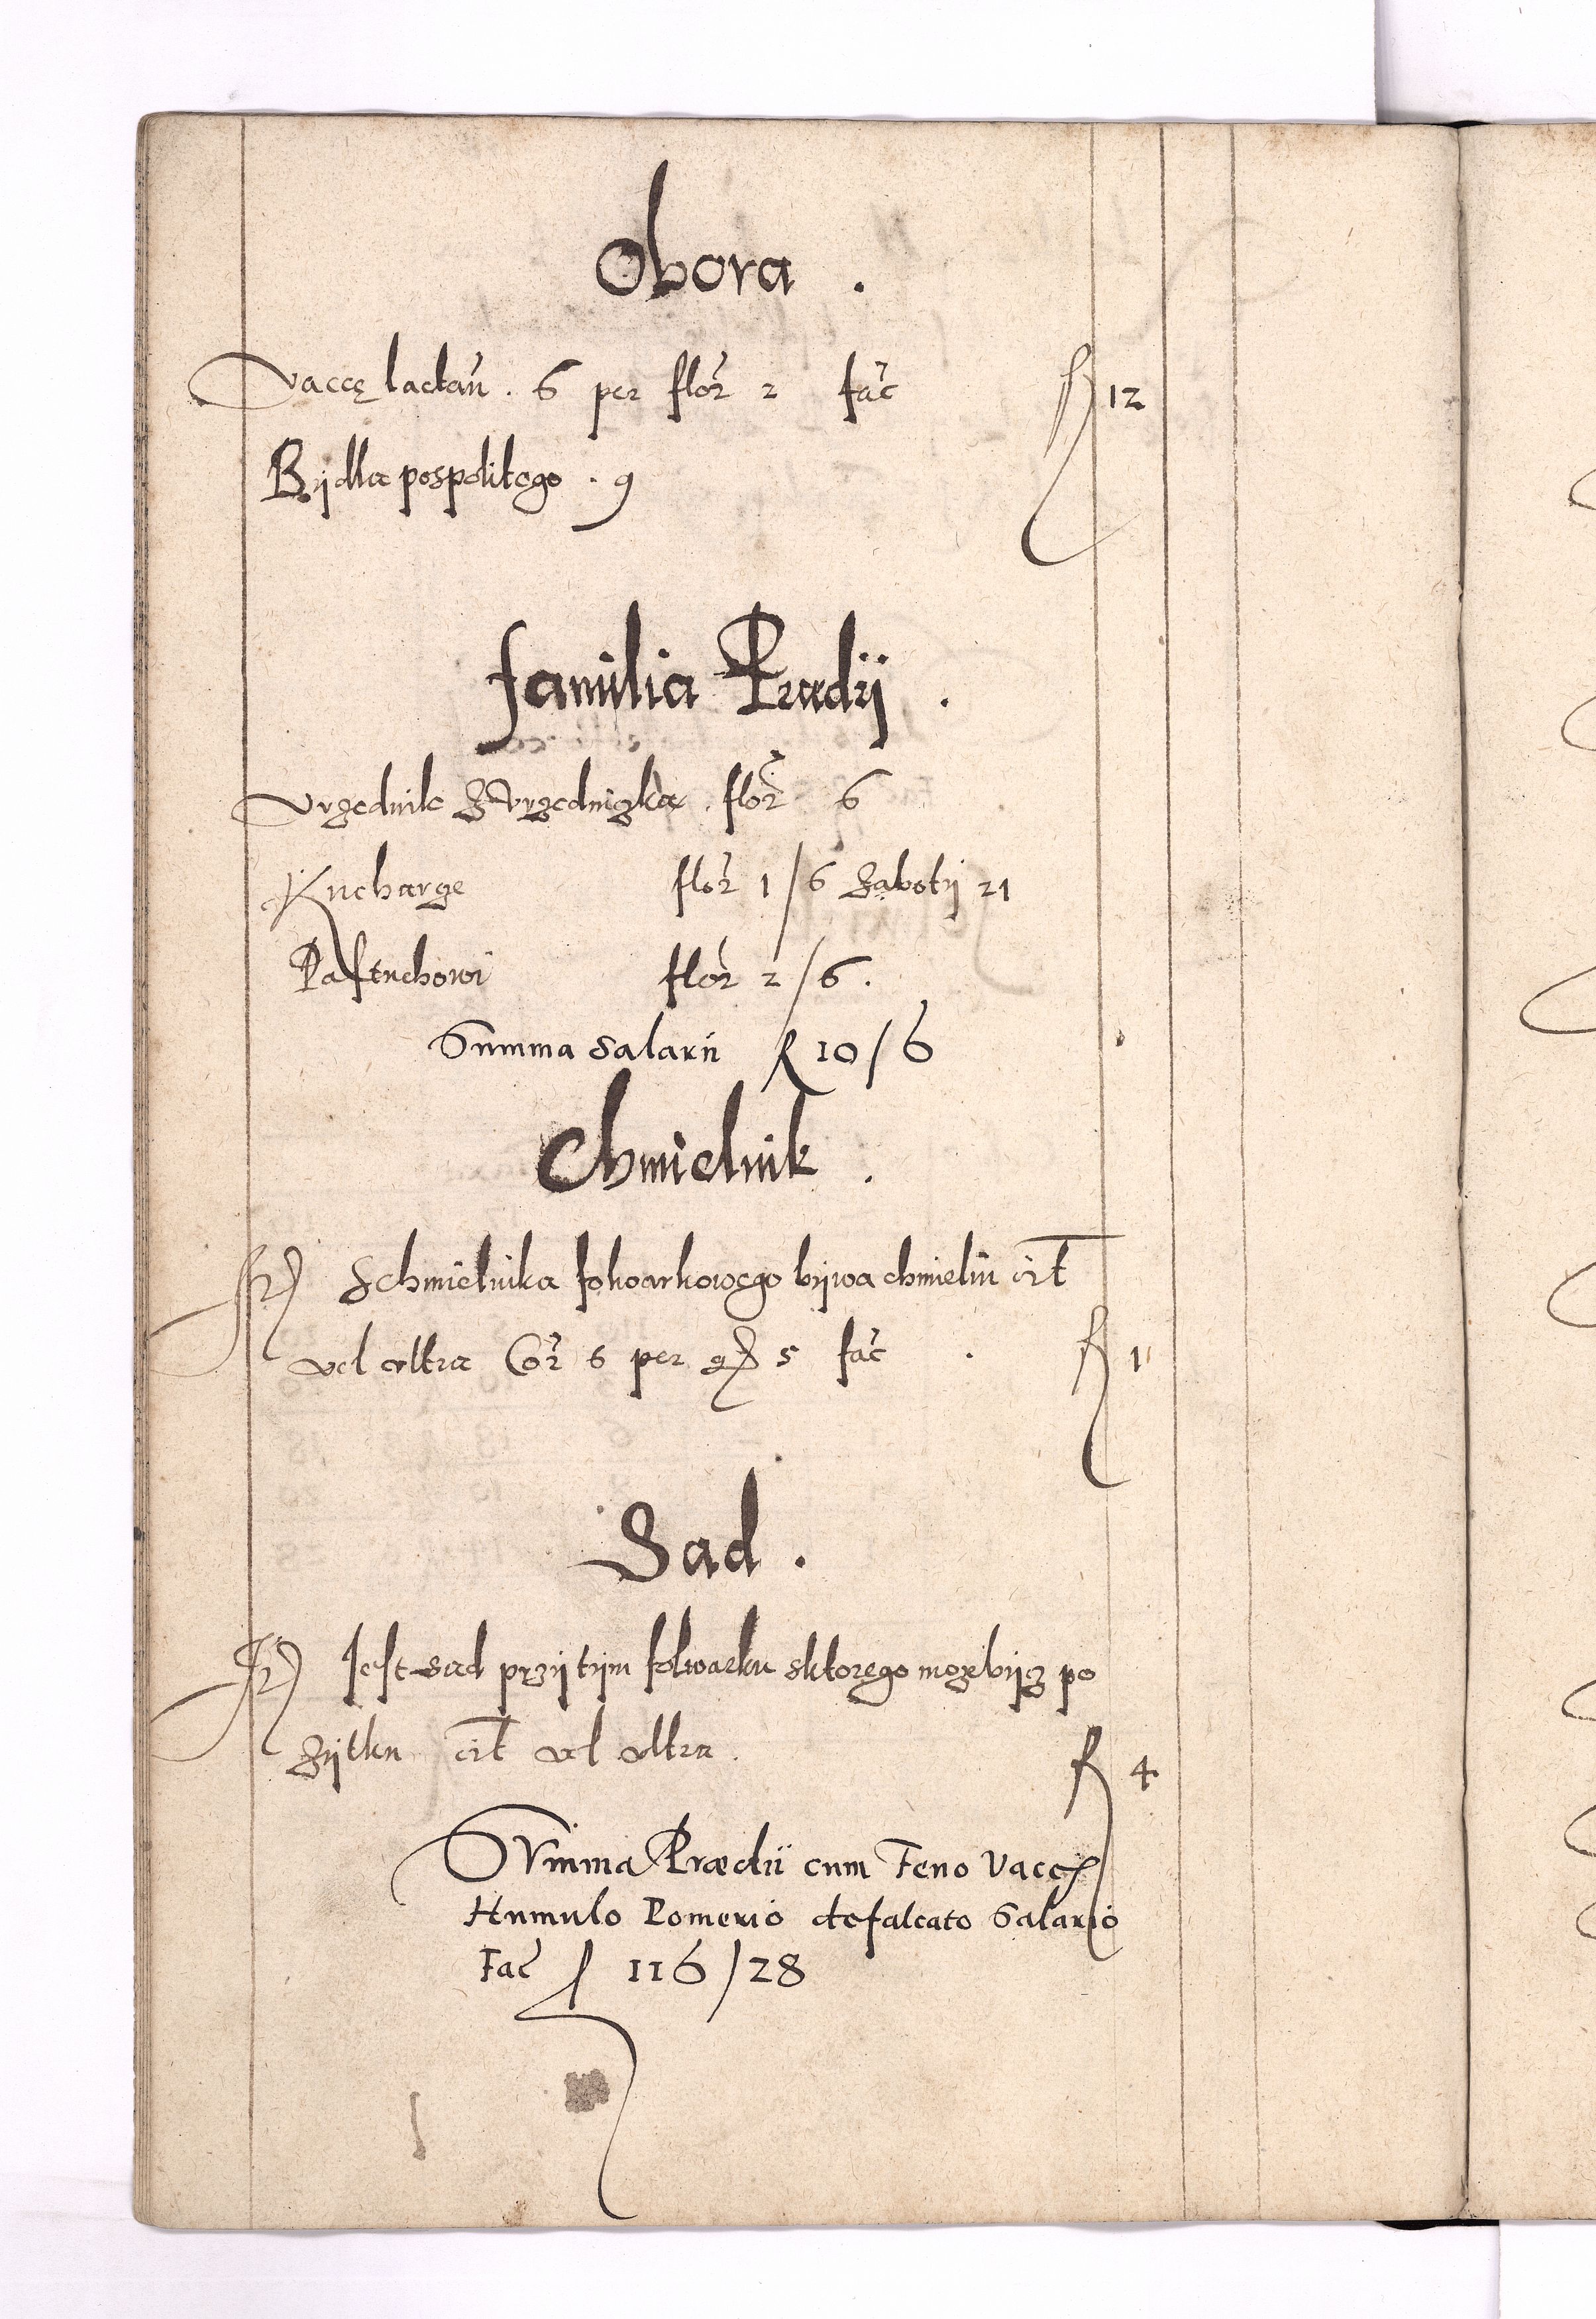 Obora .
Vaccę lactan̄ . 6 per flor̄ 2 fac̄ fl 12
Bydla pospolitego . 9
familia Prædij .
Vrzednik z Vrzedniczka . flor̄ 6
Kucharze flor̄ 1/6 zaboty 21
Pastuchowi flor̄ 2/6 .
Summa Salarii fl 10/6
Chmielnik .
Schmielnika folwarkowego bywa chmieliu cir̄t
vel vltra Cor̄ 6 per gr 5 fac̄ . fl 1
Sad .
Jest sad przy tym folwarku sktorego może bycz po
zytku cir̄t vel vltra . fl 4
Summa Prædii cum Feno Vaccis
Humulo Pomerio defalcato Salario
Fac̄ fl 116/28